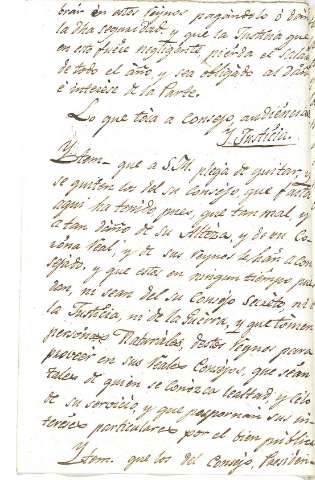 brar en estos Reynos pagandolo ó dan
la dha seguridad, y que la Justicia que
en esto fuere negligente pierda el Salar
de todo el año, y sea obligado al Daño
é interese de la Parte.
Lo que toca a Consejo, audiencia
y Justicia.
Ytem. que a S.M. plega de quitar, y
se quiten los del su Consejo, que hasta
aqui ha tenido, pues, que tan mal, y
a tan daño de su Alteza, y de su Co-
rona Real, y de sus Reynos le han acon
sejado, y que estos en ningun tiempo pue
dan, ni sean del su Consejo Secreto ni de
la Justicia, ni de la Guerra, y que tomen
personas Naturales destos Reynos para
proveer en sus Reales Consejos, que sean
tales de quien se conozca lealtad, y celo
de su servicio, y que pospornan sus in-
tereses particulares por el bien publico
Ytem. que los del Consejo, Presiden-